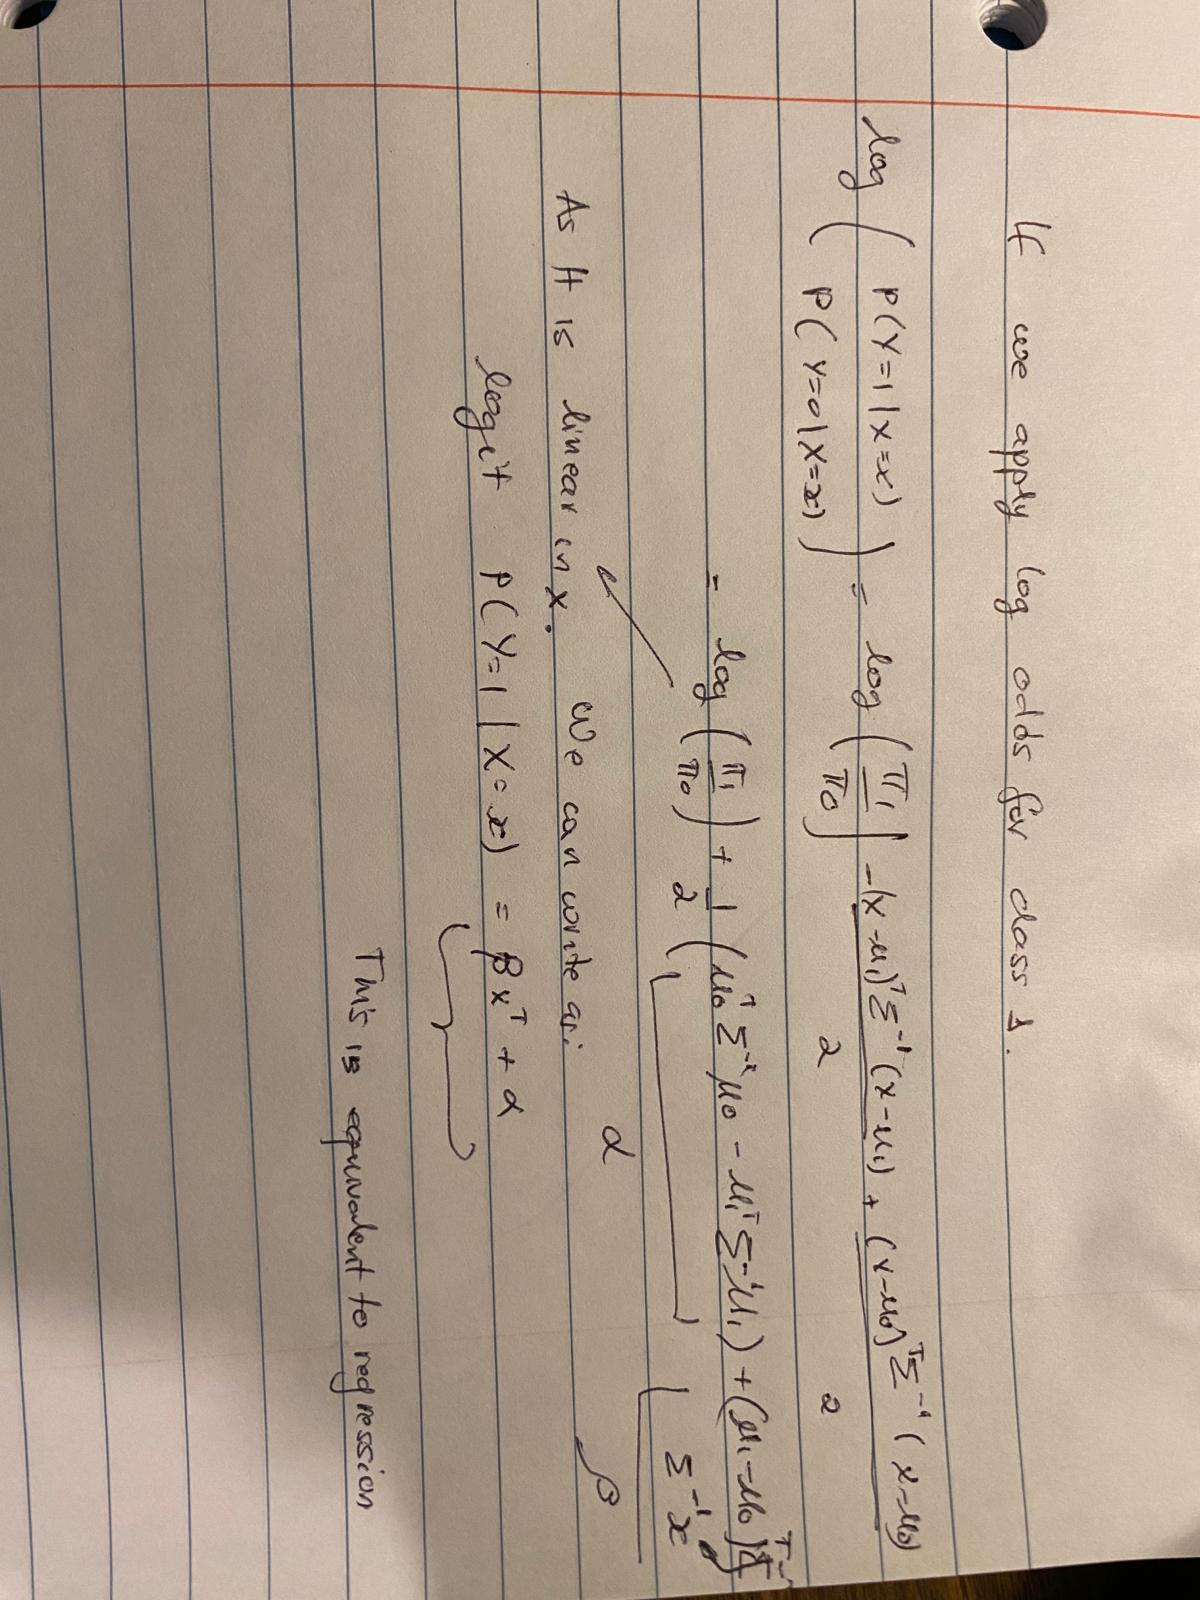 If we apply log odds for class 1.
log ( P(Y=1|X=x) / P(Y=0|X=x) ) = log ( π₁ / π₀ ) - (x-μ₁)ᵀ Σ⁻¹ (x-μ₁) / 2 + (x-μ₀)ᵀ Σ⁻¹ (x-μ₀) / 2
= log ( π₁ / π₀ ) + 1/2 ( μ₀ᵀ Σ⁻¹ μ₀ - μ₁ᵀ Σ⁻¹ μ₁ ) + (μ₁-μ₀)ᵀ
Σ⁻¹ x
α
β
As It is linear in x. We can write as:
logit P(Y=1|X=x) = βxᵀ + α
This is equivalent to regression